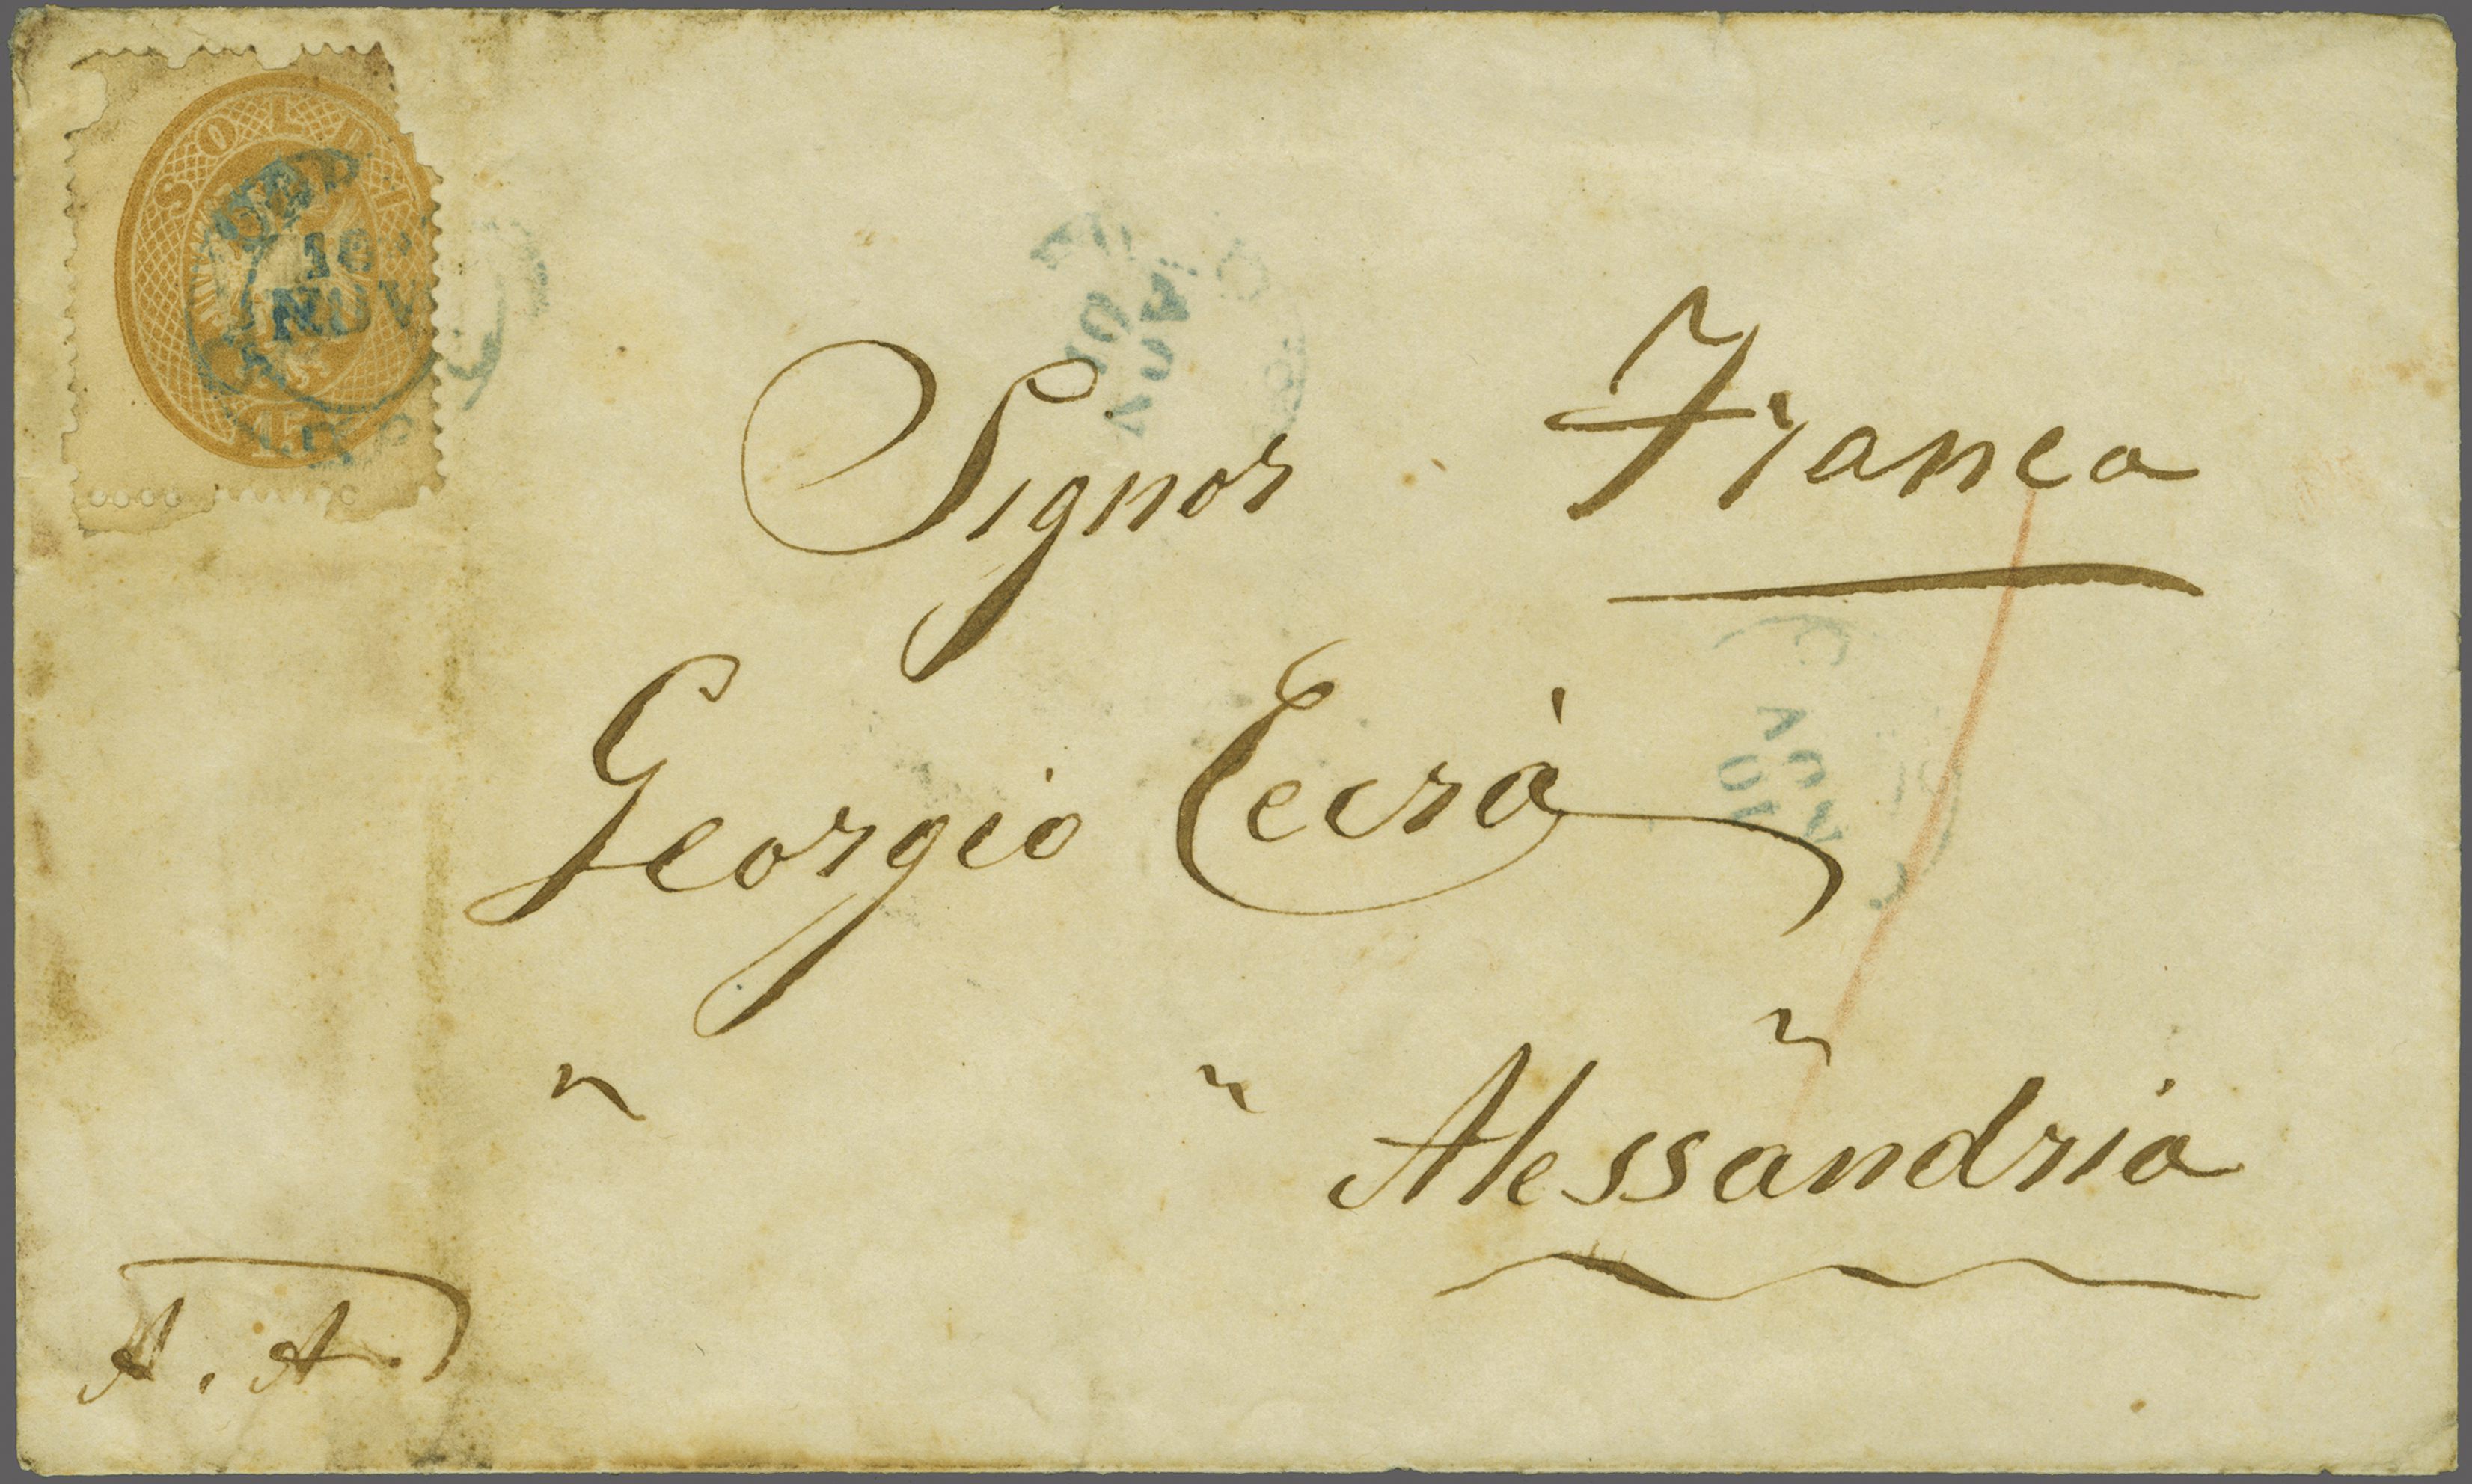 SOLDI
10
NOV
15
Signor Franca
Georgio Cecrà
Alessandria
A. A.